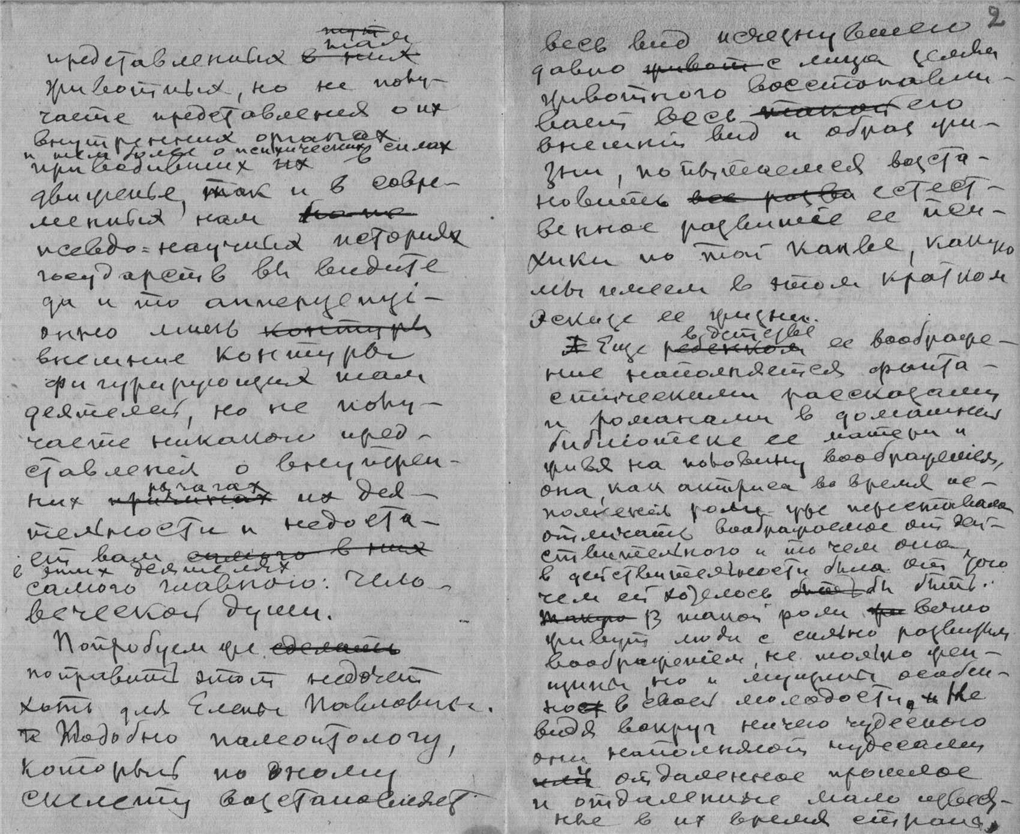 путя
там
представленных в них
животных, но не полу-
чаете представления о их
внутренних органах
и тем более о психических силах
приводивших их в
движенье, так и в совре-
менных нам
псевдо=научных историях
государств вы видите
да и то апперцепці-
онно лишь контуры
внешние контуры
фигурирующих там
деятелей, но не полу-
чаете никакого пред-
ставления о внутрен-
рычагах
них причинах их дея-
тельности и недоста-
ет вам самого в них
в этих деятелях
самого главного: чело-
веческой души.
Попробуем же сделать
поправить этот недочет
хоть для Елены Павловны.
Подобно палеонтологу,
который по одному
скелету возстановляет
2
весь вид исчезнувшего
давно живот с лица земли
животного восстанавли-
вает весь такой его
внешний вид и образ жи-
зни, попытаемся возста-
новить все разви естест-
венное развитие ее пси-
хики по той канве, какую
мы имеем в этом кратком
эскизе ее жизни.
в детстве
Еще ребенком ее воображе-
ние наполняется фанта-
стическими рассказами
и романами в домашней
библіотеке ее матери и
живя на половину воображеніем,
она, как актриса во время ис-
полнения роли уже переставала
отличать воображаемое от дей-
ствительного и то чем она
в действительности была от того
чем ей хотелось бы быть.
Такую В такой роли вечно
живут люди с сильно развитым
воображением, не только жен-
щины, но и мущины особен-
но в своей молодости. Не
видя вокруг ничего чудесного
они наполняют чудесами
или отдаленное прошлое
и отдаленные мало извест-
ные в их время страны.